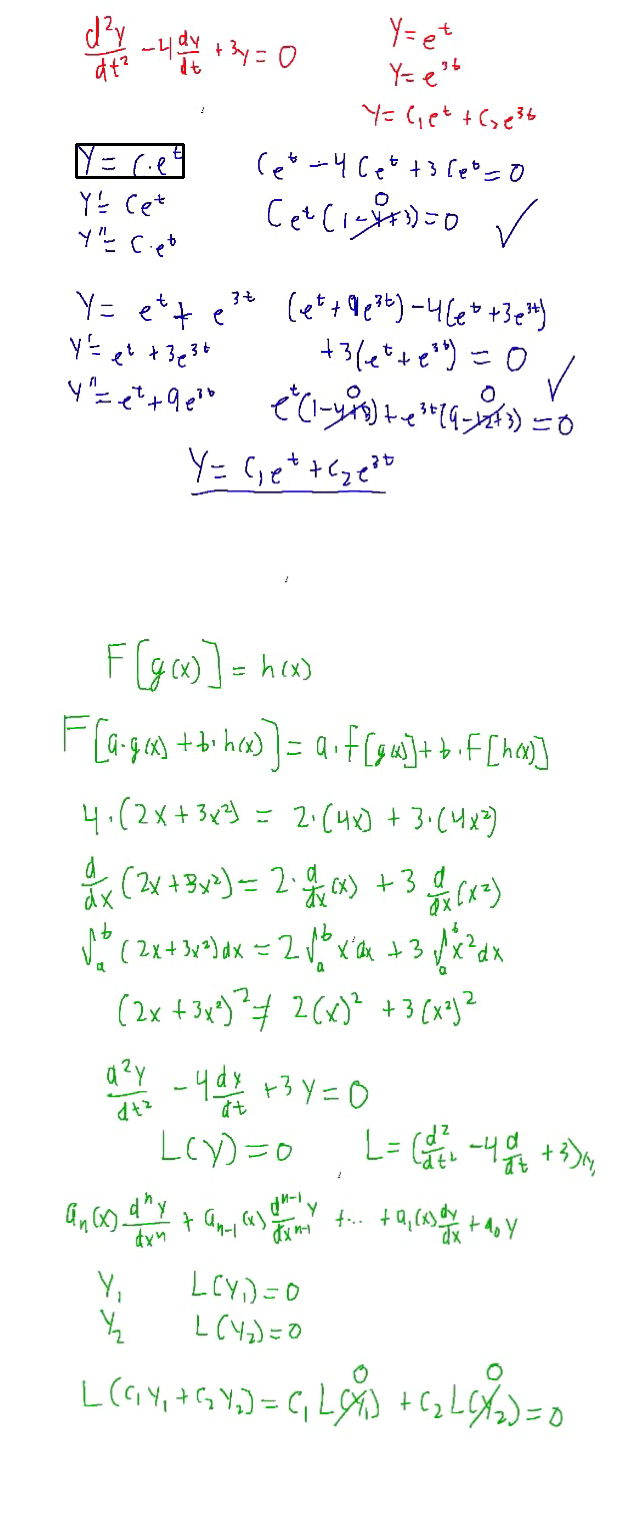 d²y/dt² - 4 dy/dt + 3y = 0
y = e^t
y = e^3t
y = C₁e^t + C₂e^3t
y = C·e^t
y' = Ce^t
y'' = C·e^t
Ce^t - 4Ce^t + 3Ce^t = 0
Ce^t(1-4+3) = 0 ✓
0
y = e^t + e^3t
y' = e^t + 3e^3t
y'' = e^t + 9e^3t
(e^t + 9e^3t) - 4(e^t + 3e^3t)
+3(e^t + e^3t) = 0 ✓
0 0
e^t(1-4+3) + e^3t(9-12+3) = 0
y = C₁e^t + C₂e^3t
F[g(x)] = h(x)
F[a·g(x) + b·h(x)] = a·F[g(x)] + b·F[h(x)]
4·(2x + 3x²) = 2·(4x) + 3·(4x²)
d/dx (2x + 3x²) = 2·d/dx (x) + 3 d/dx (x²)
∫_a^b (2x + 3x²)dx = 2∫_a^b x dx + 3∫_a^b x² dx
(2x + 3x²)² ≠ 2(x)² + 3(x²)²
d²y/dt² - 4 dy/dt + 3y = 0
L(y) = 0 L = (d²/dt² - 4 d/dt + 3)y
a_n(x) d^n y/dx^n + a_n-1(x) d^n-1 y/dx^n-1 + ... + a₁(x) dy/dx + a₀y
y₁ L(y₁) = 0
y₂ L(y₂) = 0
0 0
L(C₁y₁ + C₂y₂) = C₁L(y₁) + C₂L(y₂) = 0